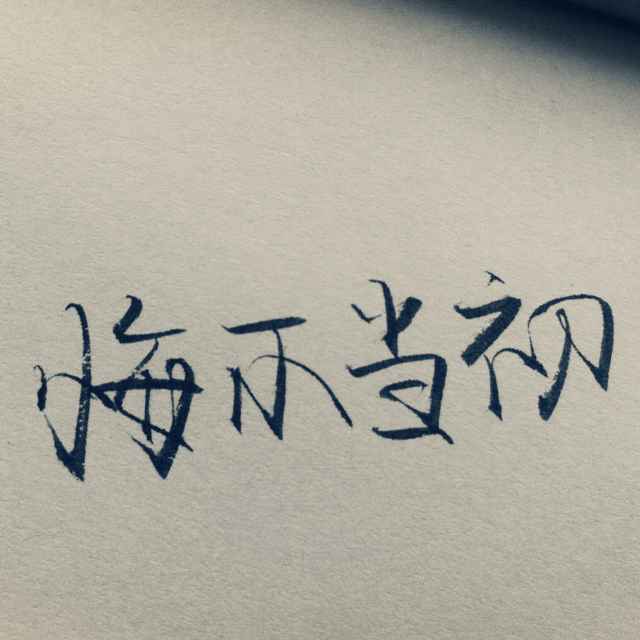 悔不当初